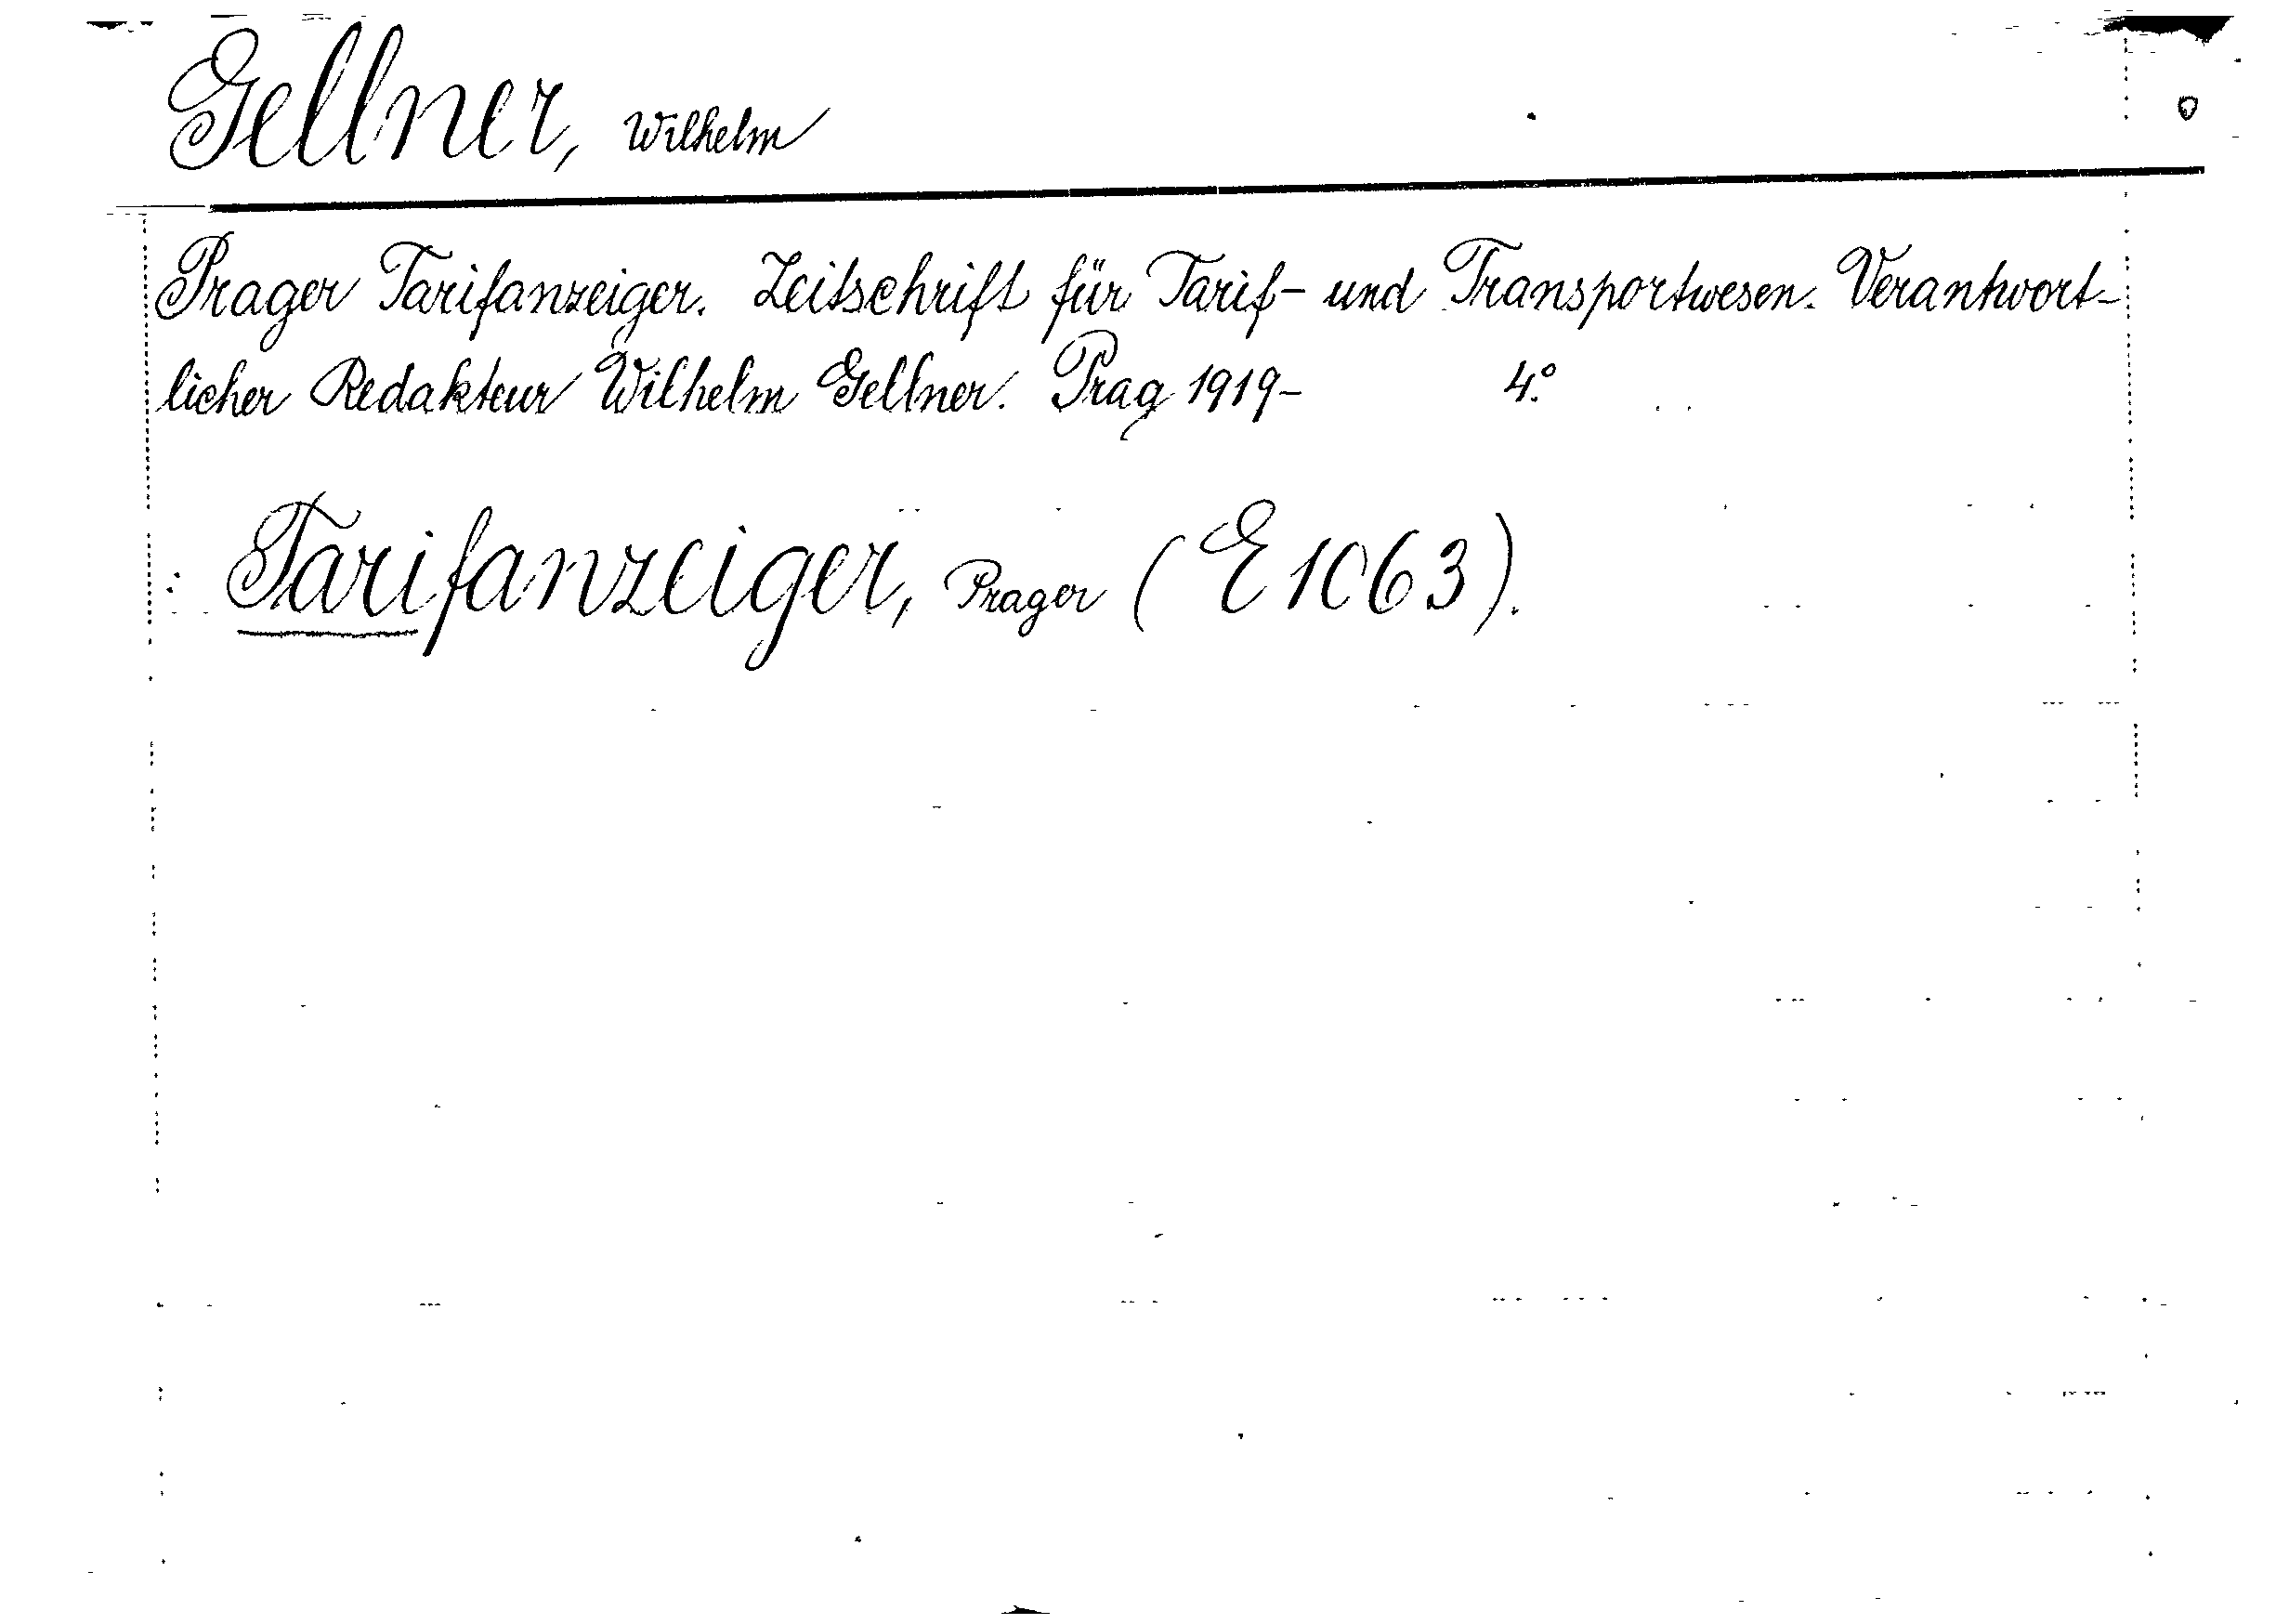 Gellner, Wilhelm
Prager Tarifanzeiger. Zeitschrift für Tarif- und Transportwesen. Verantwort-
licher Redakteur Wilhelm Gellner. Prag 1919- 4.°
: Tarifanzeiger, Prager (E1063).